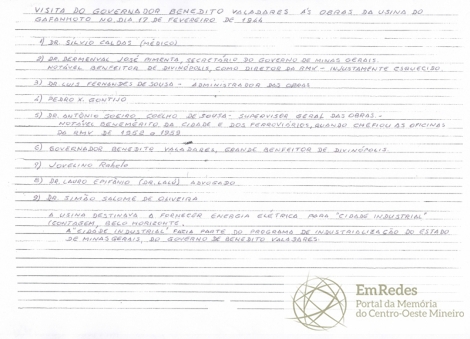 VISITA DO GOVERNADOR BENEDITO VALADARES ÀS OBRAS DA USINA DO
GAFANHOTO NO DIA 17 DE FEVEREIRO DE 1944
1) DR. SÍLVIO CALDAS (MÉDICO)
2) DR. DERMENVAL JOSÉ PIMENTA, SECRETÁRIO DO GOVERNO DE MINAS GERAIS.
NOTÁVEL BENFEITOR DE DIVINÓPOLIS, COMO DIRETOR DA RMV - INJUSTAMENTE ESQUECIDO.
3) DR LUIS FERNANDES DE SOUSA - ADMINISTRADOR DAS OBRAS
4) PEDRO X. GONTIJO
5) DR. ANTÔNIO SOEIRO COELHO DE SOUSA - SUPERVISOR GERAL DAS OBRAS.-
NOTÁVEL BENEMÉRITO DA CIDADE E DOS FERROVIÁRIOS, QUANDO CHEFIOU AS OFICINAS
DA RMV DE 1952 a 1959
6) GOVERNADOR BENEDITO VALADARES, GRANDE BENFEITOR DE DIVINÓPOLIS.
7) JOVELINO Rabelo
8) DR. LAURO EPIFÂNIO (DR. LALÚ) ADVOGADO
9) DR. SIMÃO SALOMÉ DE OLIVEIRA
A USINA DESTINAVA A FORNECER ENERGIA ELÉTRICA PARA "CIDADE INDUSTRIAL"
(CONTAGEM, BELO HORIZONTE.
A "CIDADE INDUSTRIAL" FAZIA PARTE DO PROGRAMA DE INDUSTRIALIZAÇÃO DO ESTADO
DE MINAS GERAIS, DO GOVERNO DE BENEDITO VALADARES
EmRedes
Portal da Memória
do Centro-Oeste Mineiro